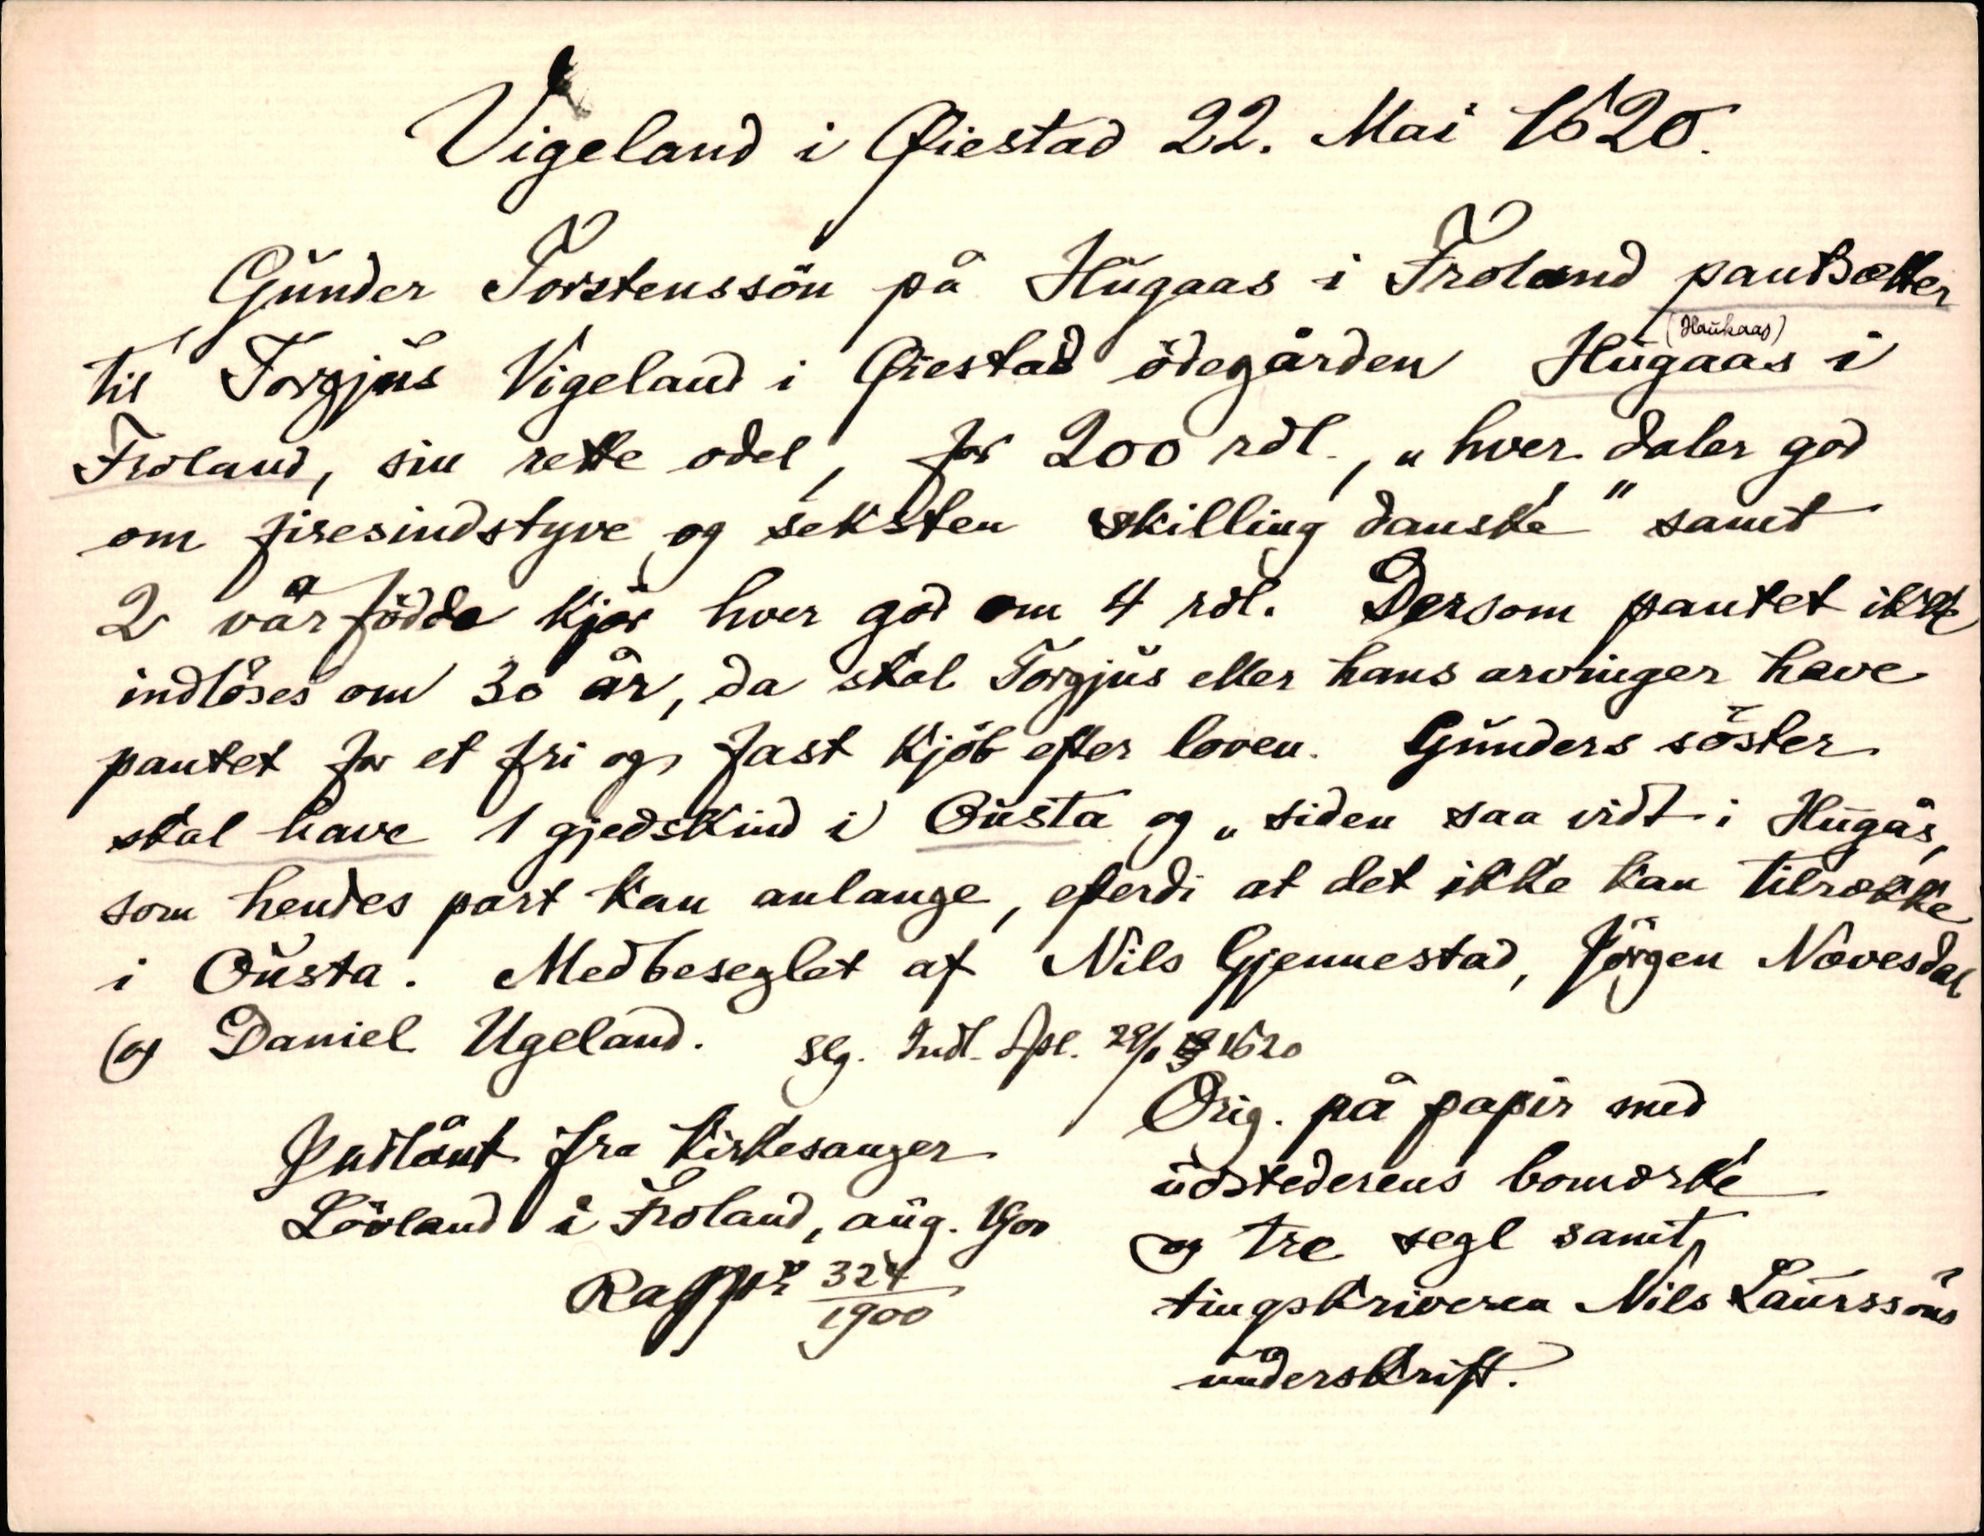 Vigeland i Øiestad 22. Mai 1620.
Gunder Torstenssön på Hugaas i Froland pantsætter
til Torgjus Vigeland i Øiestad ödegården Hugaas (Haukaas) i
Froland, sin rette odel, for 200 rdl., „hver daler god
om firesindstyve og seksten skilling danske" samt
2 vårfödde kjör hver god om 4 rdl. Dersom pantet ikke
indlöses om 30 år, da skal Torgjus eller hans arvinger have
pantet for et fri og fast kjöb efter loven. Gunders söster
skal have 1 gjedskind i Ousta og „siden saa vidt i Hugås,
som hendes part kan anlange, efterdi at det ikke kan tilrække
i Ousta. Medbeseglet af Nils Gjennestad, Jörgen Nævesdal
og Daniel Ugeland. slg. Indl. Dpl. 1620
Indlånt fra kirkesanger
Lövland i Froland, aug. 1900
324
1900
Orig. på papir med
udstederens bomærke
og tre segl samt
tingskriveren Nils Laurssöns
underskrift.